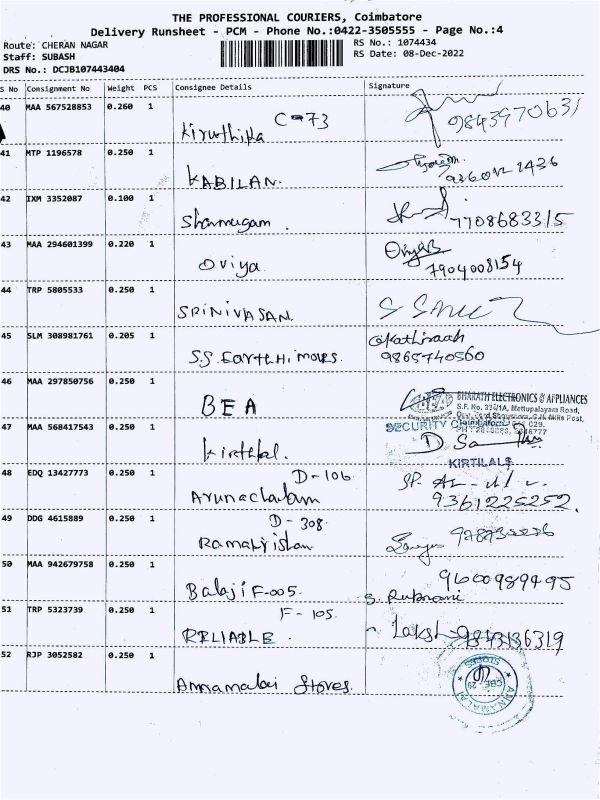 THE PROFESSIONAL COURIERS, Coimbatore
Delivery Runsheet - PCM - Phone No.:0422-3505555 - Page No.:4
Route: CHERAN NAGAR
RS No.: 1074434
Staff: SUBASH
RS Date: 08-Dec-2022
DRS No.: DCJB107443404
S No Consignment No Weight PCS Consignee Details Signature
40 MAA 567528853 0.260 1
C-73
Kiruthika
9843970631
41 MTP 1196578 0.250 1
KABILAN.
42 IXM 3352087 0.100 1
Shanmugam.
7708683315
43 MAA 294601399 0.220 1
Oviya
7904008154
44 TRP 5805533 0.250 1
SRINIVASAN.
45 SLM 308981761 0.205 1
S.S. Earth Himovers.
9865740560
46 MAA 297850756 0.250 1
BEA
BHARATH ELECTRONICS & APPLIANCES
47 MAA 568417543 0.250 1
SECURITY
KIRTILALS
48 EDQ 13427773 0.250 1
D-106
Arunachalam
9361225252.
49 DDG 4615889 0.250 1
D-308
Ramakrishnan
50 MAA 942679758 0.250 1
Balaji F-005
9600989495
51 TRP 5323739 0.250 1
F-105.
RELIABLE.
9843136319
52 RJP 3052582 0.250 1
Annamalai Stores.
ANNAMALAI STORES
CBE
29